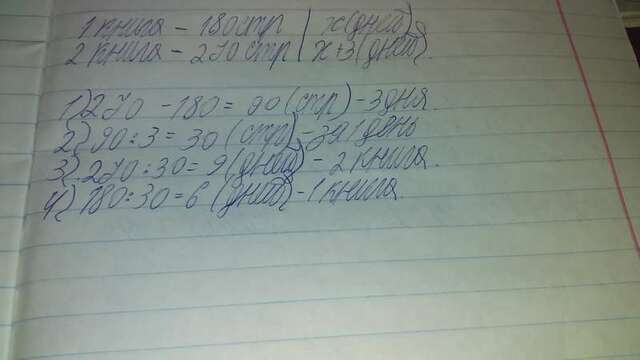 1 книга - 180 стр | x (дней)
2 книга - 270 стр | x+3 (дней).
1) 270 - 180 = 90 (стр) - 3 дня.
2) 90 : 3 = 30 (стр) - за 1 день
3) 270 : 30 = 9 (дней) - 2 книга.
4) 180 : 30 = 6 (дней) - 1 книга.